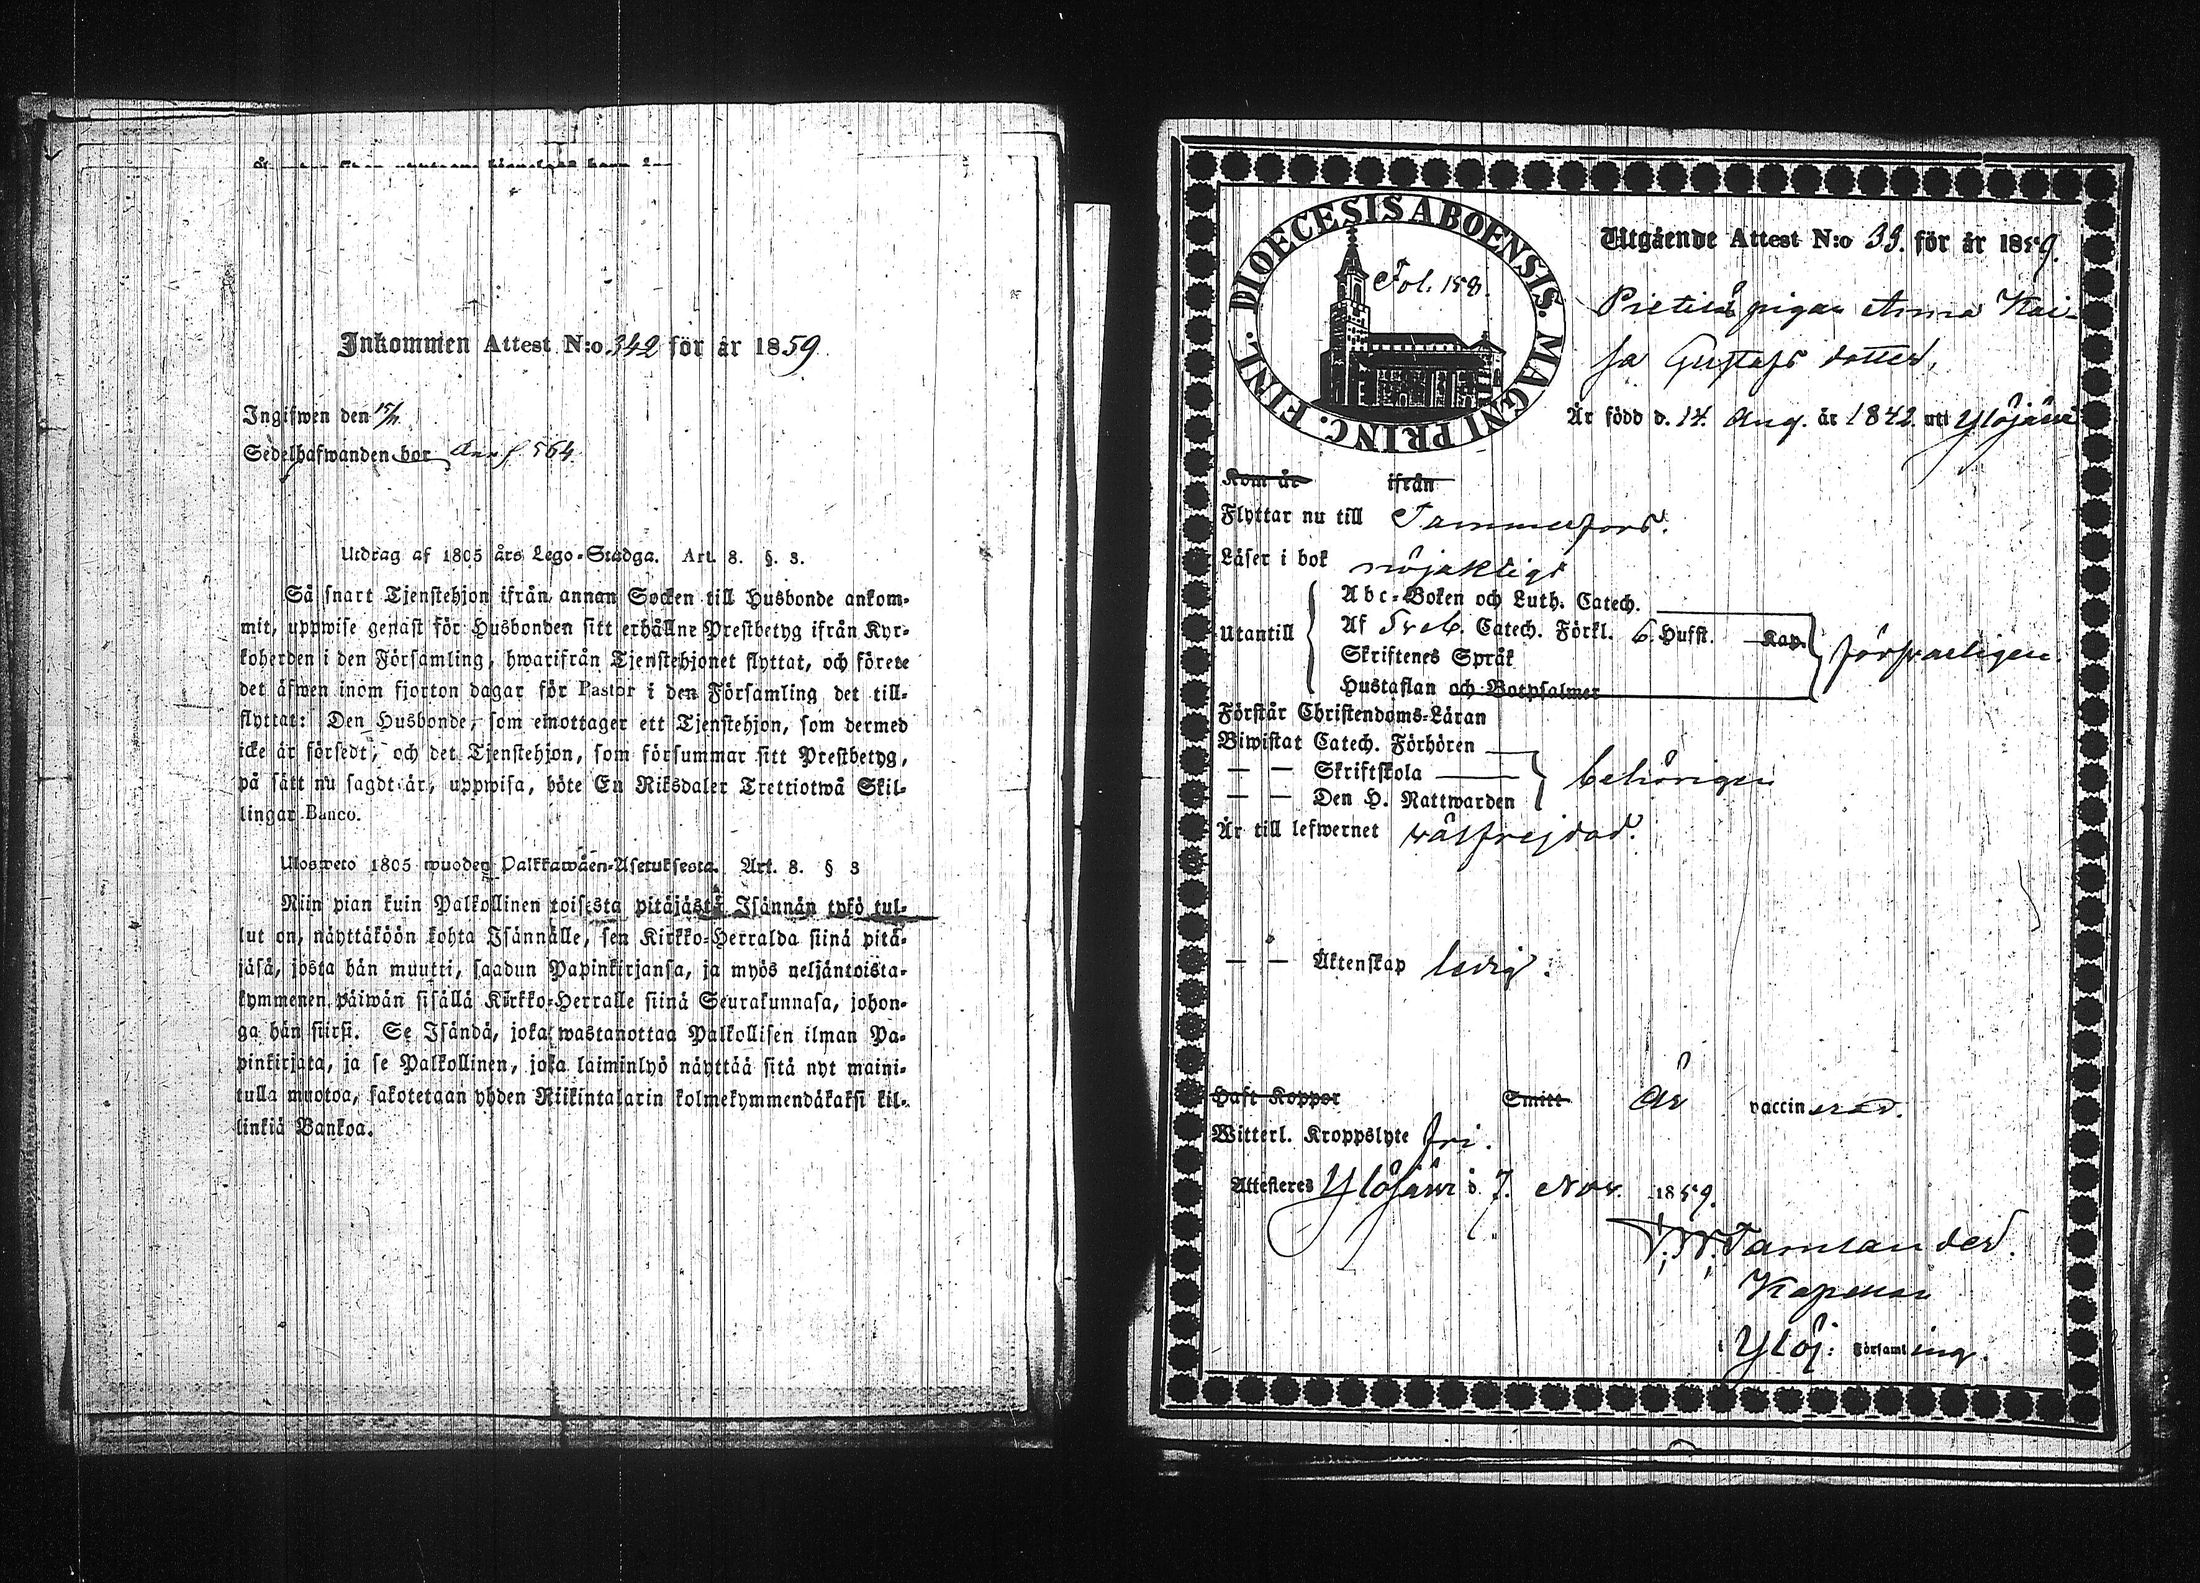 Inkommen Attest N:o 342 för år 1859
Ingifwen den 15/11
Sedelhafwanden bor Ann f 564
Utdrag af 1805 års Lego-Stadga. Art. 8. §. 3.
Så snart Tjenstehjon ifrån annan Socken till Husbonde ankom-
mit, uppwise genast för Husbonden sitt erhållne Prestbetyg ifrån Kyr-
koherden i den Församling, hwarifrån Tjenstehjonet flyttat, och förete
det äfwen inom fjorton dagar för Pastor i den Församling det till-
flyttat: Den Husbonde, som emottager ett Tjenstehjon, som dermed
icke är försedt, och det Tjenstehjon, som försummar sitt Prestbetyg,
på sätt nu sagdt är, uppwisa, böte En Riksdaler Trettiotwå Skil-
lingar Banco.
Ulosweto 1805 wuoden Palkkawäen-Asetuksesta. Art. 8. § 3
Niin pian kuin Palkollinen toisesta pitäjästä Isännän tykö tul-
lut on, näyttäköön kohta Isännälle, sen Kirkko-Herralda siinä pitä-
jäsä, josta hän muutti, saadun Papinkirjansa, ja myös neljäntoista-
kymmenen päiwän sisällä Kirkko-Herralle siinä Seurakunnasa, johon-
ga hän siirsi. Se Isändä, joka wastanottaa Palkollisen ilman Pa-
pinkirjata, ja se Palkollinen, joka laiminlyö näyttää sitä nyt maini-
tulla muotoa, sakotetaan yhden Riikintalarin kolmekymmendäkaksi kil-
linkiä Bankoa.
DIOECESIS ABOENSIS. MAGNI PRINC. FINL.
Fol. 158.
Utgående Attest N:o 33. för år 1859.
Pietilä pigan Anna Kai-
sa Gustafs dotter,
Är född d. 14. Aug. år 1842. uti Ylöjärvi
Kom år ifrån
Flyttar nu till Tammerfors.
Läser i bok nöjaktligt
Utantill
Abc-Boken och Luth. Catech.
Af Sveb. Catech. Förkl. 6 Hufst. Kap.
Skriftenes Språk
Hustaflan och Botpsalmer
försvarligen.
Förstår Christendoms-Läran
Biwistat Catech. Förhören
— — Skriftskola
— — Den H. Nattwarden
behörigen
Är till lefwernet välfrejdad.
— — Äktenskap ledig.
Haft Koppor Smitt Är vaccinerad.
Witterl. Kroppslyte fri.
Attesteras Ylöjärvi d. 7. Nov. 1859.
Tamlander.
Kapellan
i Ylöj: Församling.